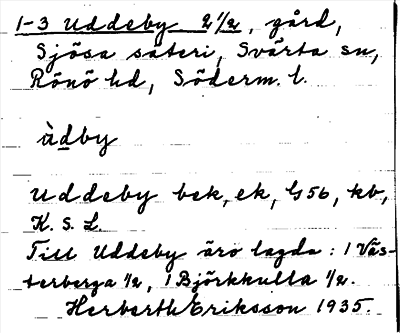 1-3 Uddeby 2 1/2, gård,
Sjösa säteri, Svärta sn,
Rönö hd, Söderm. l.
àdby
Uddeby bek, ek, G56, kb,
K. S. L.
Till Uddeby äro lagda: 1 Väs-
terberga 1/2, 1 Björkkulla 1/2.
Herberth Eriksson 1935.